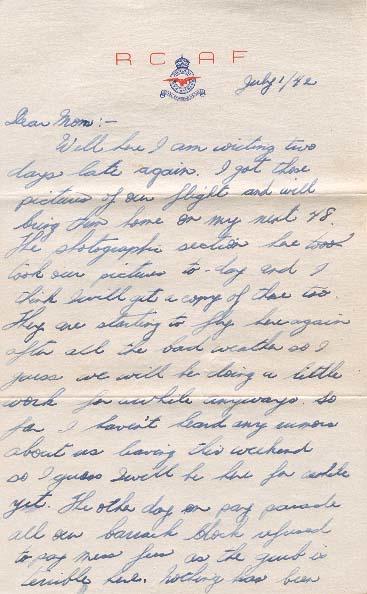 R C A F
July 1/42
Dear Mom:-
Well here I am writing two
days late again. I got those
pictures of our flight and will
bring them home on my next 48.
The photographic section here took
took our pictures to-day and I
think I will get a copy of those too.
They are starting to fly here again
after all the bad weather so I
guess we will be doing a little
work for awhile anyways. So
far I haven't heard any rumors
about us leaving this weekend
so I guess I will be here for awhile
yet. The other day on pay parade
all our barrack block refused
to pay mess fees as the grub is
terrible here. Nothing has been